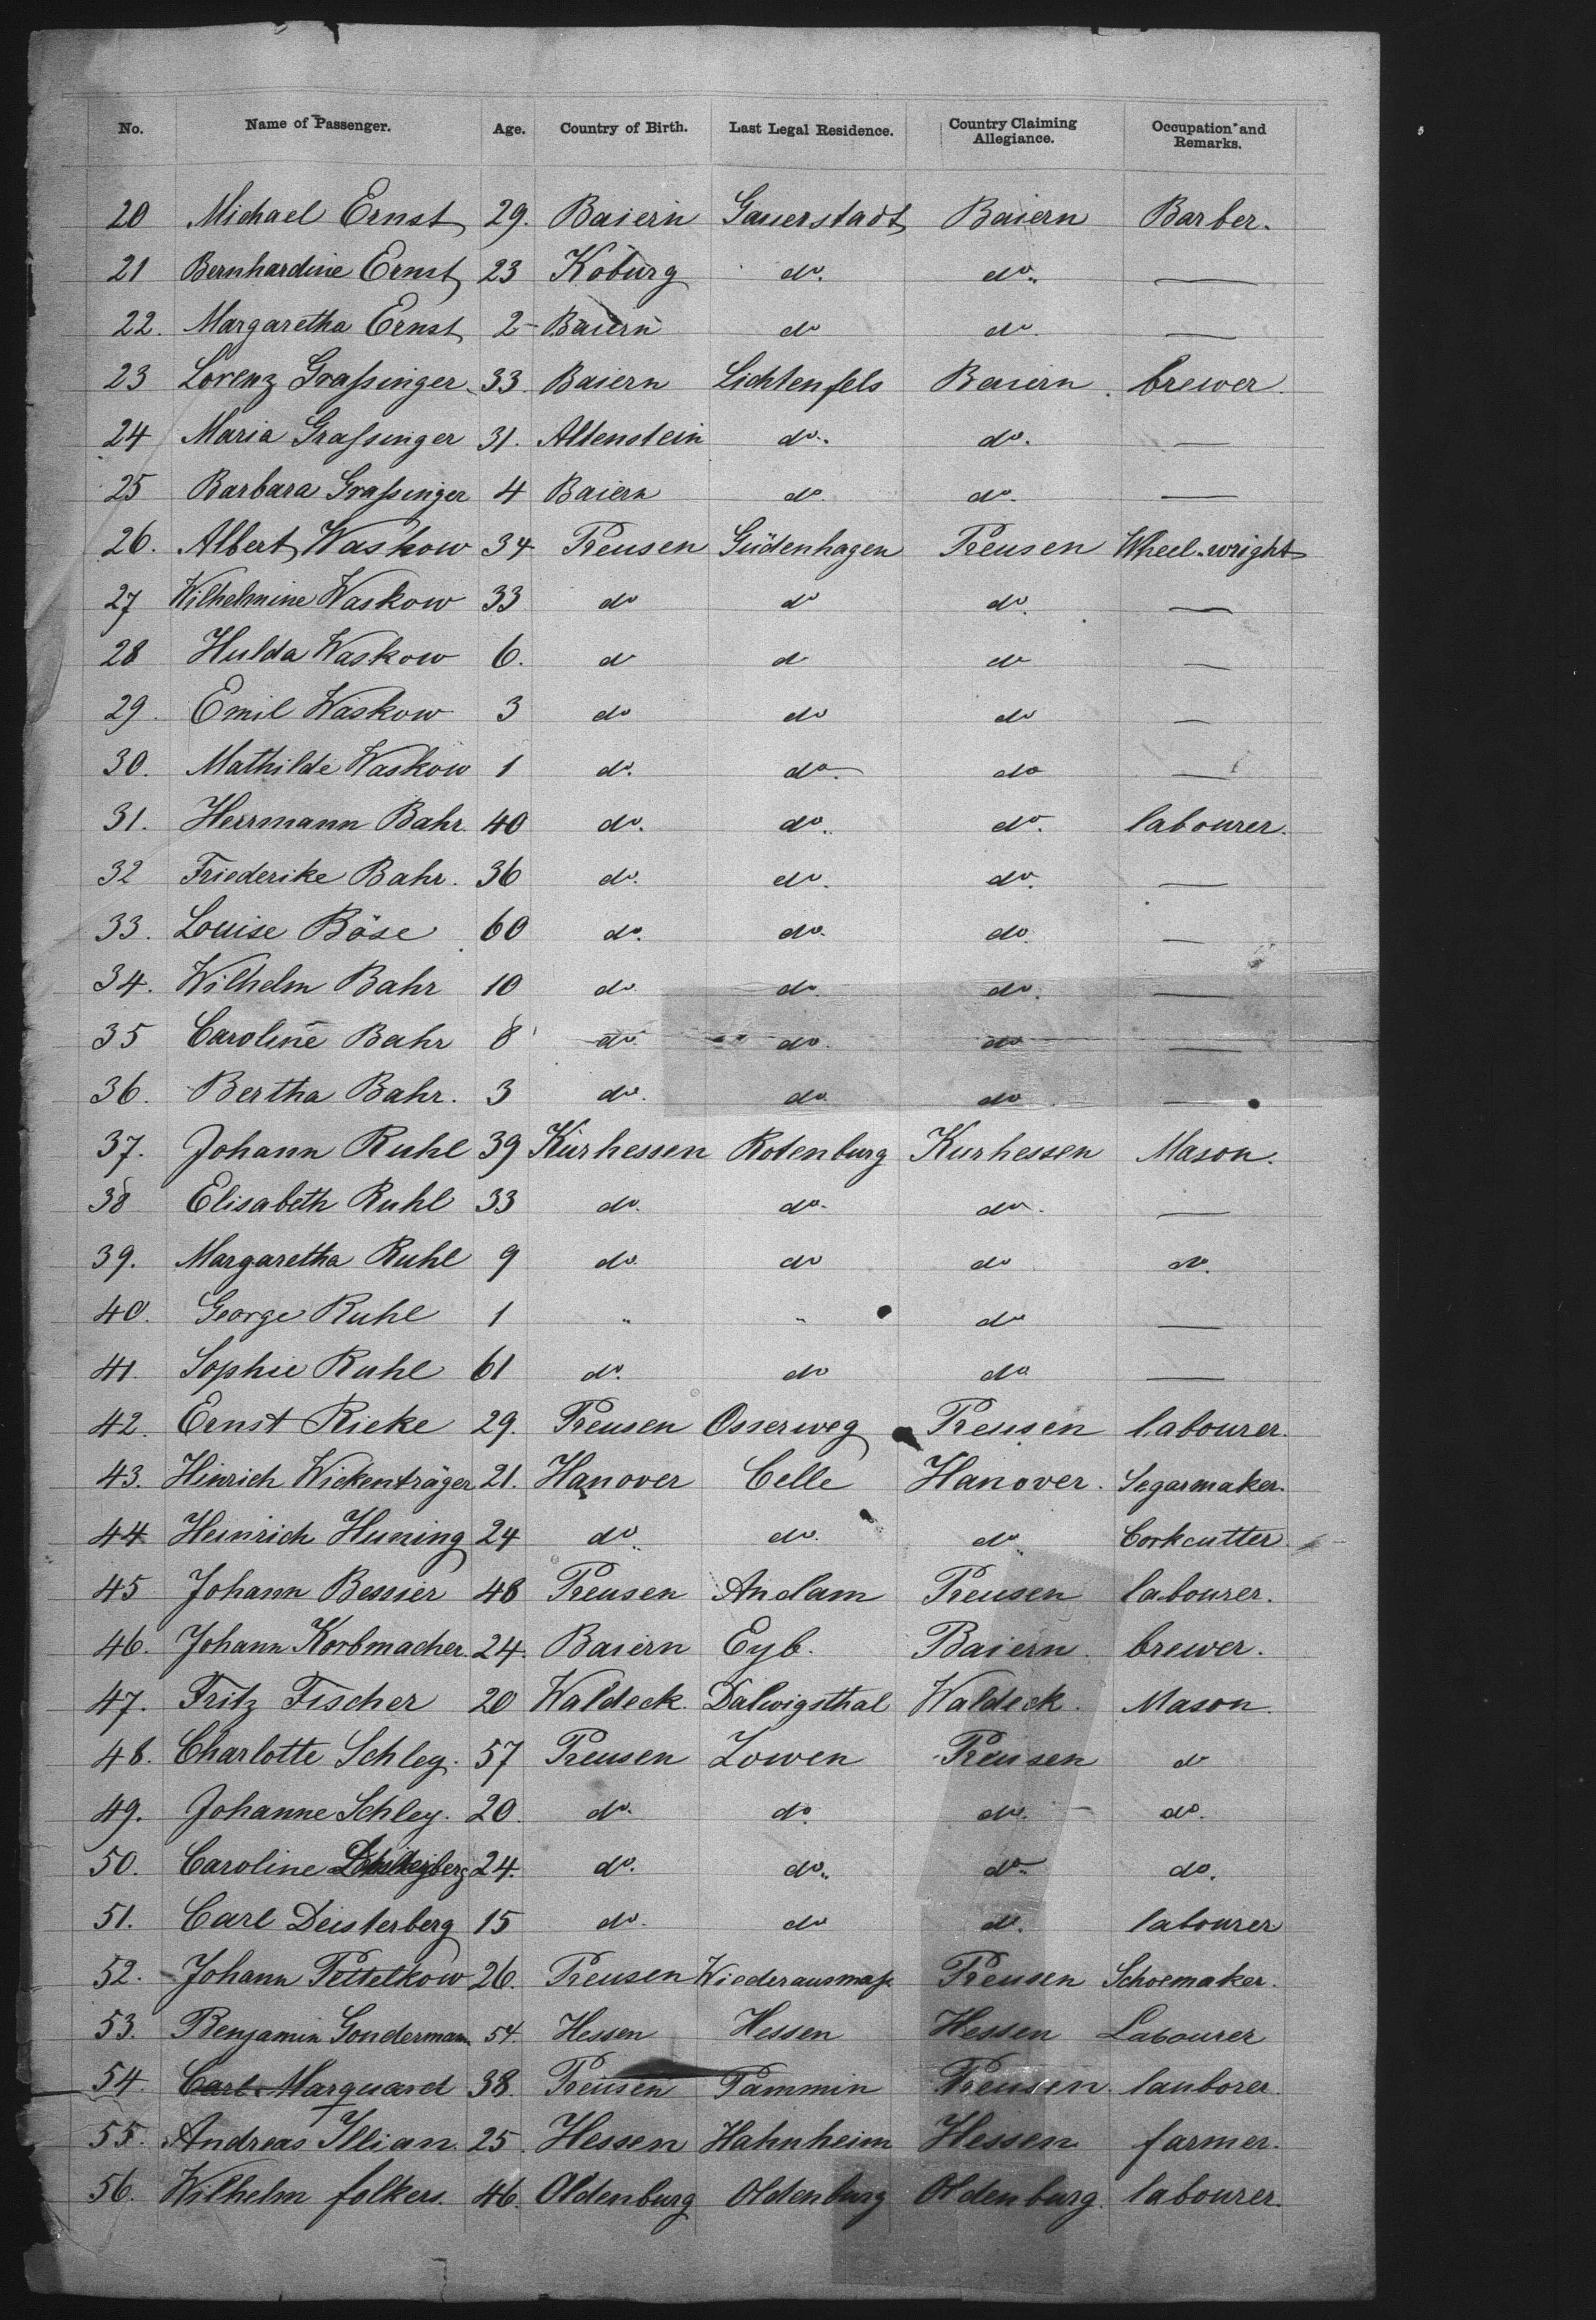 No. Name of Passenger. Age. Country of Birth. Last Legal Residence. Country Claiming Allegiance. Occupation and Remarks.
20 Michael Ernst 29. Baiern Gauerstadt Baiern Barber.
21 Bernhardine Ernst 23 Koburg do. do. —
22. Margaretha Ernst 2 - Baiern do do. —
23 Lorenz Graſsinger 33. Baiern Lichtenfels Baiern brewer.
24 Maria Graſsinger 31. Altenstein do. do. —
25 Barbara Graſsinger 4 Baiern do. do. —
26. Albert Waskow 34 Preusen Güdenhagen Preusen Wheel-wright
27 Wilhelmine Waskow 33 do do do. —
28 Hulda Waskow 6. do do do —
29. Emil Waskow 3 do do do —
30. Mathilde Waskow 1 do. do. do —
31. Herrmann Bahr. 40 do. do. do. labourer.
32 Friederike Bahr. 36 do. do. do. —
33. Louise Böse 60 do. do. do. —
34. Wilhelm Bahr 10 do. do. do. —
35 Caroline Bahr 8 do. do. do —
36. Bertha Bahr. 3 do. do. do —
37. Johann Ruhl 39 Kurhessen Rotenburg Kurhessen Mason.
38 Elisabeth Ruhl 33 do. do. do. —
39. Margaretha Ruhl 9 do. do do do.
40. George Ruhl 1 " " do —
41. Sophie Ruhl 61 do. do do —
42. Ernst Rieke 29. Preusen Osserweg Preusen labourer.
43. Hinrich Wickenträger 21. Hanover Celle Hanover. Segarmaker.
44 Heinrich Huning 24 do. do. do. Corkcutter
45 Johann Bessier 48 Preusen Anclam Preusen labourer.
46. Johann Korbmacher. 24. Baiern Eyb. Baiern. brewer.
47. Fritz Fischer 20 Waldeck. Dalwigsthal Waldeck. Mason.
48. Charlotte Schley. 57 Preusen Zowen Preusen do
49. Johanne Schley. 20. do. do. do. do.
50. Caroline 24. do. do. do. do.
51. Carl Deisterberg 15 do. do do. labourer
52. Johann Pettelkow 26. Preusen Preusen Schoemaker.
53. Benjamin Gondermann. 54. Hessen Hessen Hessen Labourer
54. Carl Marquard 38. Preusen Pammin Preusen. lauborer.
55. Andreas Illian. 25. Hessen Hahnheim Hessen farmer.
56. Wilhelm folkers. 46. Oldenburg Oldenburg Oldenburg. labourer.